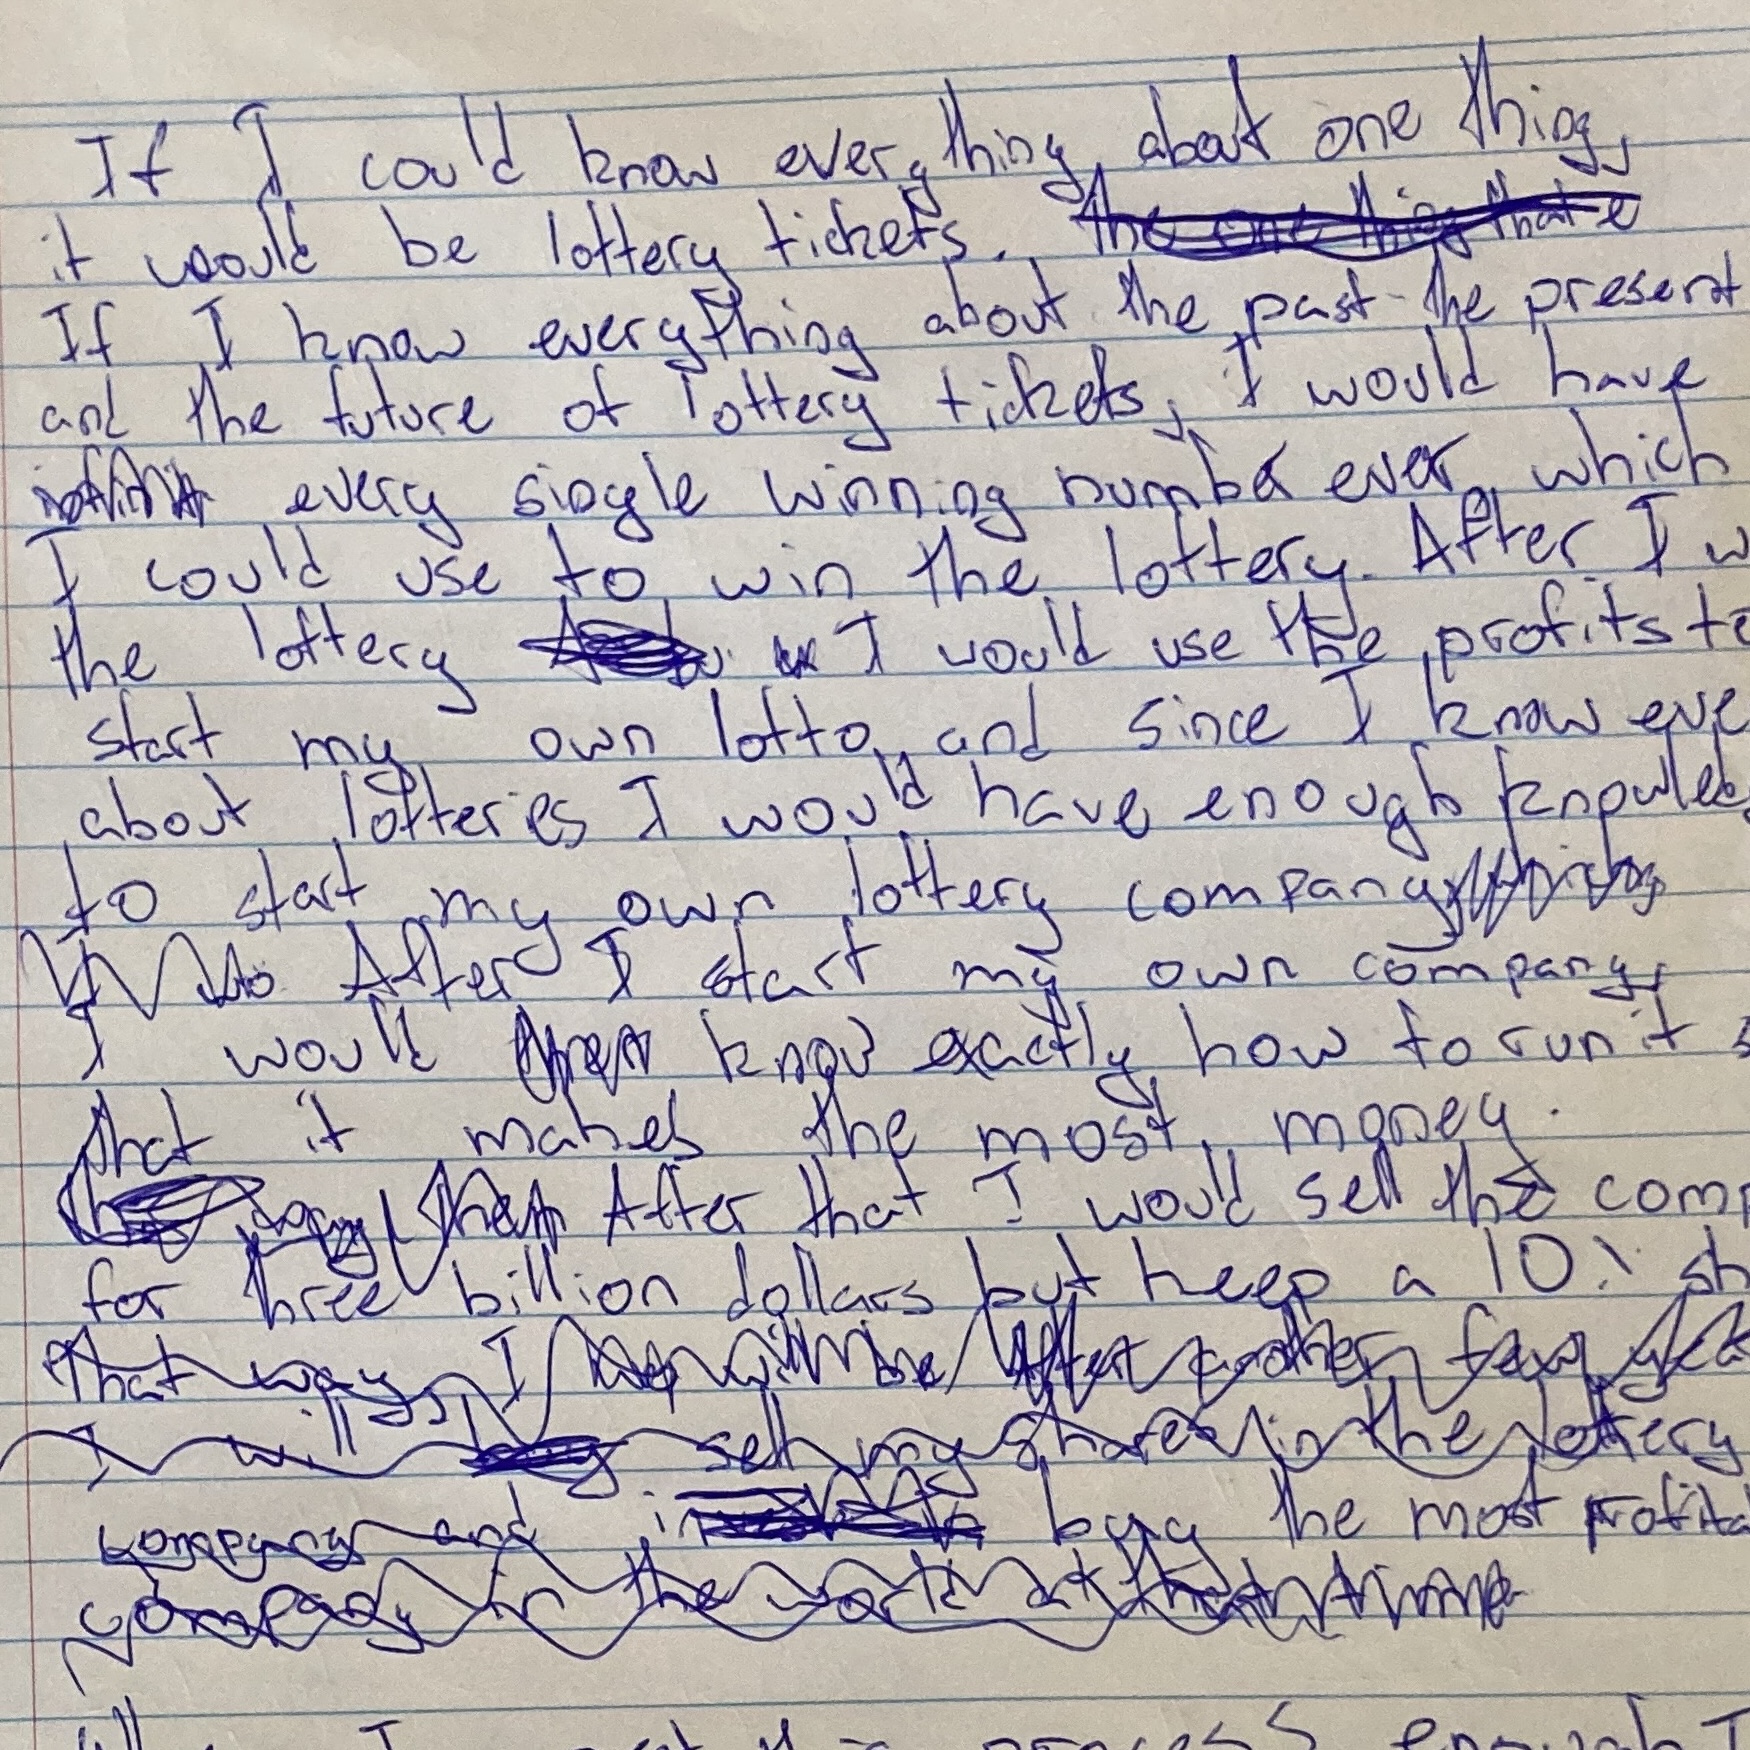 If I could know everything about one thing,
it would be lottery tickets. the one thing that
If I know everything about the past the present
and the future of lottery tickets, I would have
every single winning number ever, which
I could use to win the lottery. After I w
the lottery I would use the profits to
start my own lotto, and since I know eve
about lotteries I would have enough knowled
to start my own lottery company
After I start my own company,
I would then know exactly how to run it s
that it makes the most money.
then After that I would sell the comp
for three billion dollars but keep a 10% sh
That way, I will be After another few yea
I will sell my shares in the lottery
company and buy the most profita
company in the world at that time
process enough I